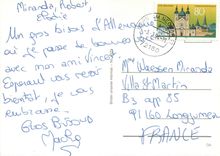 Miranda, Robert,
Elodie
Un gros bisous d'Allemagne
où je passe de bonnes
avec mon ami Vincent
Esperant vous revoir
bientôt, je vous
embrasse.
Gros Bisous
80
Mme Waessen Miranda
Villa St Martin
Bs app 35
91160 Longjumeau
FRANCE